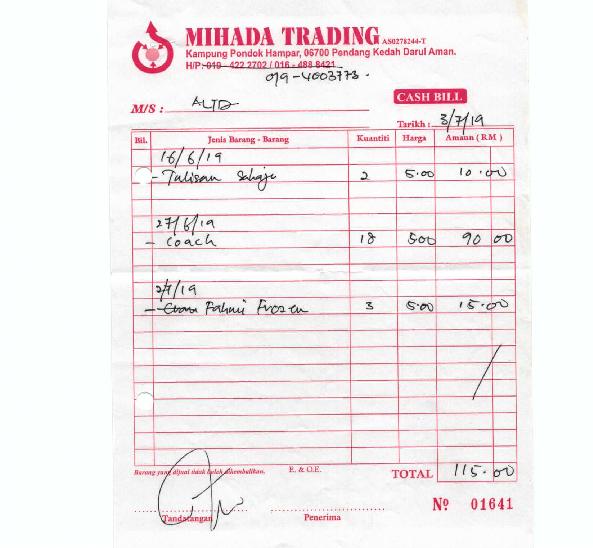 MIHADA TRADING AS0278244-T
Kampung Pondok Hampar, 06700 Pendang Kedah Darul Aman.
H/P: 019 - 422 2702 / 016 - 488 8421
019-4003773.
CASH BILL
M/S : ALTD
Tarikh : 3/7/19
Bil. Jenis Barang - Barang Kuantiti Harga Amaun ( RM )
16/6/19
- Tulisan Sahaja 2 5.00 10.00
27/6/19
- Coach 18 500 90 00
2/7/19
- Fahmi Frozen 3 5.00 15.00
Barang yang dijual tidak boleh dikembalikan. E. & O.E. TOTAL 115.00
Nº 01641
Tandatangan Penerima